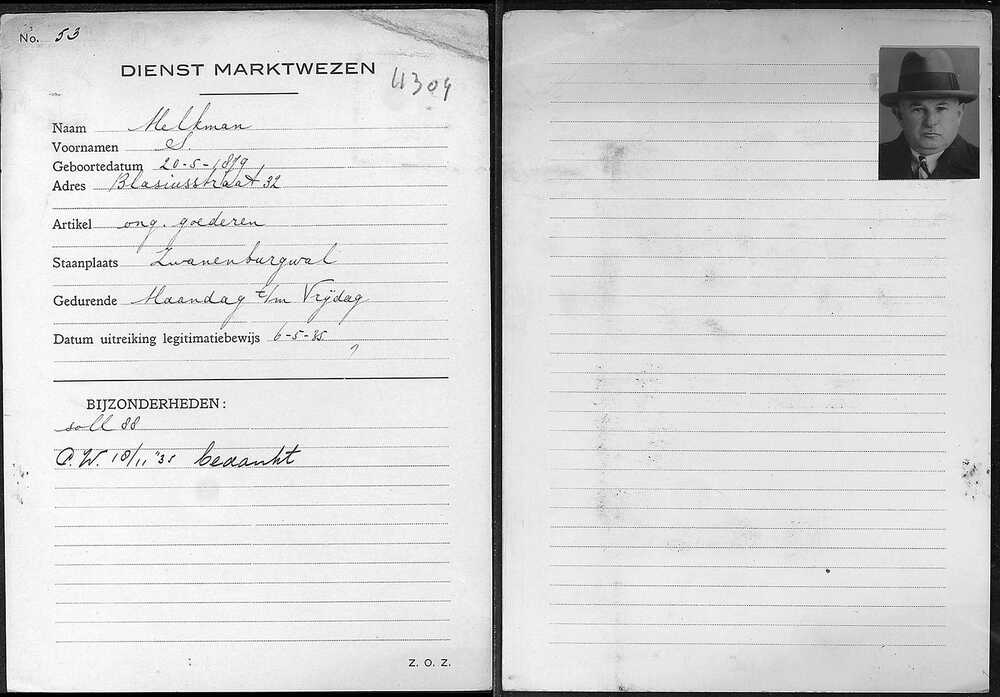 No. 53
DIENST MARKTWEZEN
4309
Naam Melkman
Voornamen S.
Geboortedatum 20-5-1879
Adres Blasiusstraat 32
Artikel ong. goederen
Staanplaats Zwanenburgwal
Gedurende Maandag t/m Vrijdag
Datum uitreiking legitimatiebewijs 6-5-35
BIJZONDERHEDEN:
soll 88
C.W. 18/11 '35 bedankt
Z. O. Z.